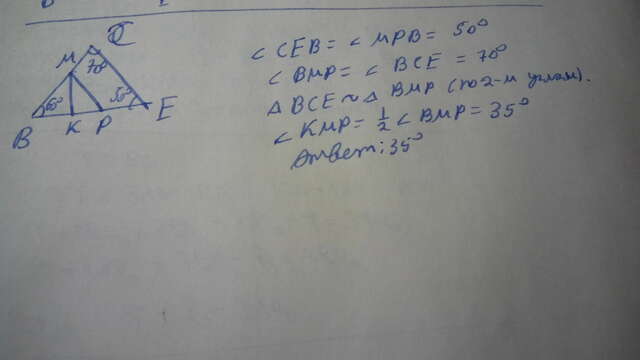 C
M
70°
60°
50°
B K P E
∠ CEB = ∠ MPB = 50°
∠ BMP = ∠ BCE = 70°
Δ BCE ~ Δ BMP (по 2-м углам).
∠ KMP = 1/2 ∠ BMP = 35°
Ответ: 35°